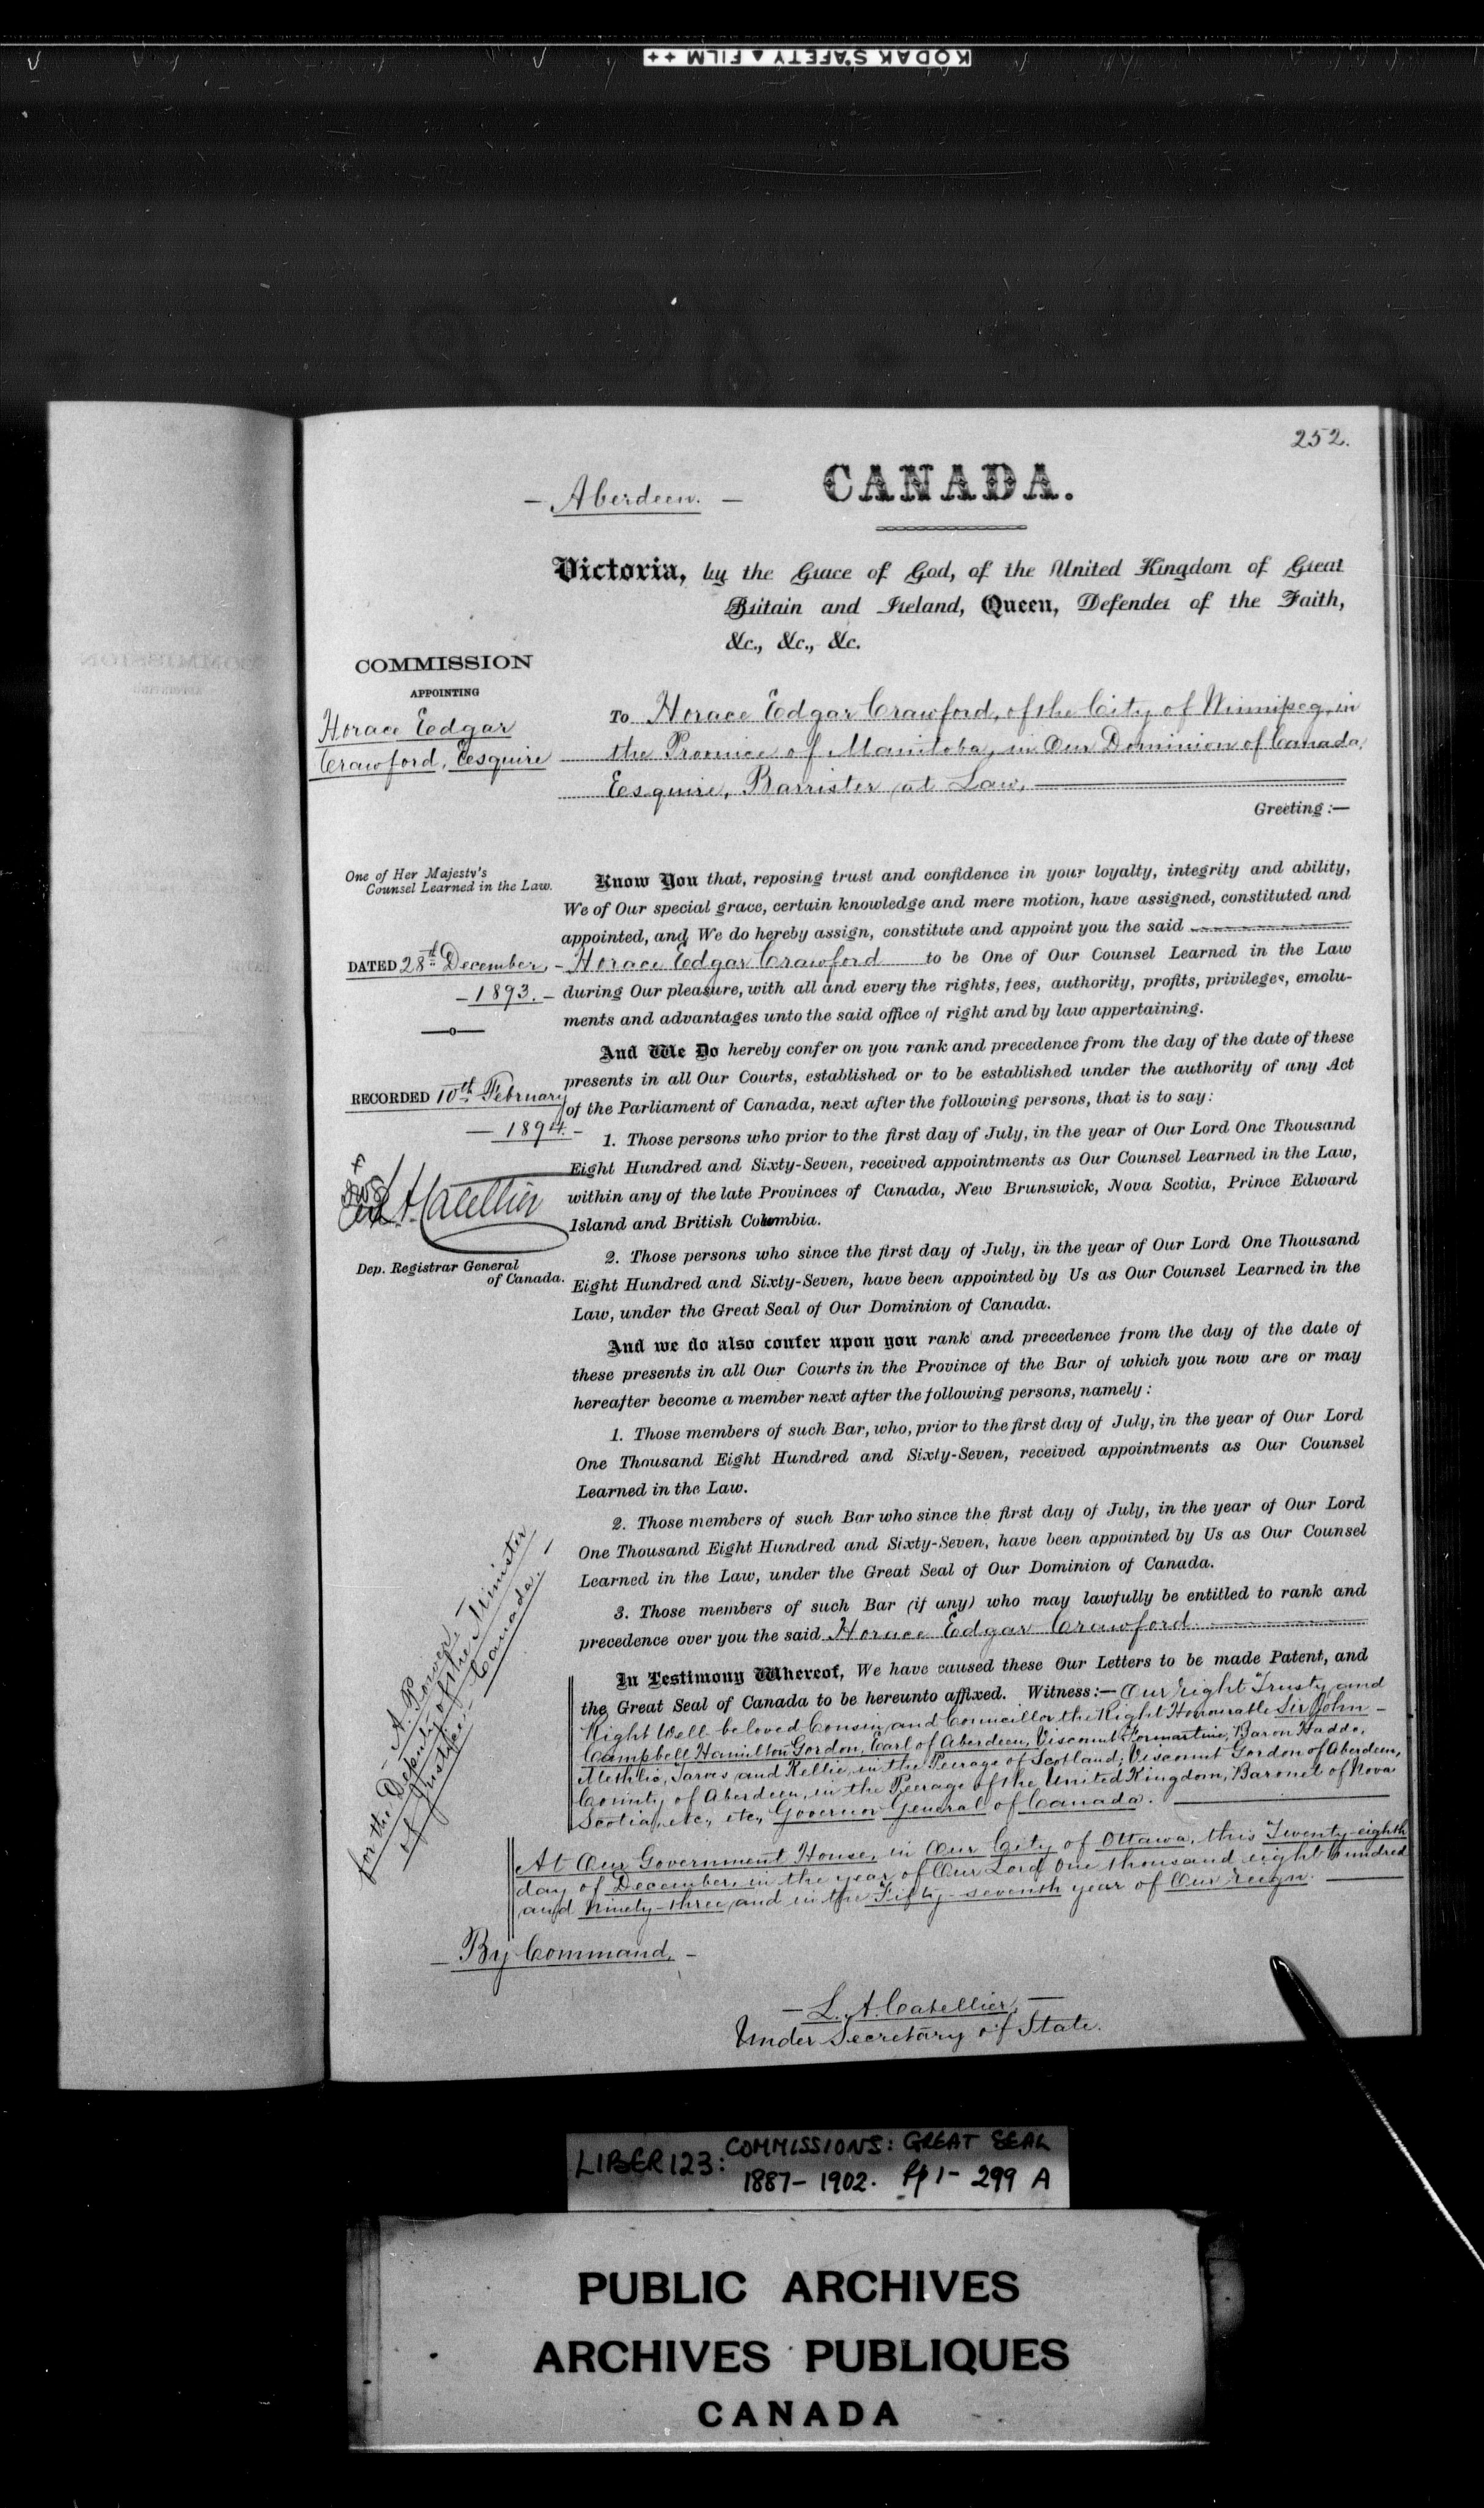 KODAK SAFETY ▲ FILM ++
252.
— Aberdeen. —
CANADA.
Victoria, by the Grace of God, of the United Kingdom of Great
Britain and Ireland, Queen, Defender of the Faith,
&c., &c., &c.
COMMISSION
APPOINTING
Horace Edgar
Crawford, Esquire
To Horace Edgar Crawford, of the City of Winnipeg, in
the Province of Manitoba, in Our Dominion of Canada,
Esquire, Barrister at Law,
Greeting :—
One of Her Majesty's
Counsel Learned in the Law.
DATED 28th December,
— 1893. —
RECORDED 10th February
— 1894. —
L. A. Catellier
Dep. Registrar General
of Canada.
Know You that, reposing trust and confidence in your loyalty, integrity and ability,
We of Our special grace, certain knowledge and mere motion, have assigned, constituted and
appointed, and We do hereby assign, constitute and appoint you the said
— Horace Edgar Crawford to be One of Our Counsel Learned in the Law
during Our pleasure, with all and every the rights, fees, authority, profits, privileges, emolu-
ments and advantages unto the said office of right and by law appertaining.
And We Do hereby confer on you rank and precedence from the day of the date of these
presents in all Our Courts, established or to be established under the authority of any Act
of the Parliament of Canada, next after the following persons, that is to say:
1. Those persons who prior to the first day of July, in the year of Our Lord One Thousand
Eight Hundred and Sixty-Seven, received appointments as Our Counsel Learned in the Law,
within any of the late Provinces of Canada, New Brunswick, Nova Scotia, Prince Edward
Island and British Columbia.
2. Those persons who since the first day of July, in the year of Our Lord One Thousand
Eight Hundred and Sixty-Seven, have been appointed by Us as Our Counsel Learned in the
Law, under the Great Seal of Our Dominion of Canada.
And we do also confer upon you rank and precedence from the day of the date of
these presents in all Our Courts in the Province of the Bar of which you now are or may
hereafter become a member next after the following persons, namely :
1. Those members of such Bar, who, prior to the first day of July, in the year of Our Lord
One Thousand Eight Hundred and Sixty-Seven, received appointments as Our Counsel
Learned in the Law.
2. Those members of such Bar who since the first day of July, in the year of Our Lord
One Thousand Eight Hundred and Sixty-Seven, have been appointed by Us as Our Counsel
Learned in the Law, under the Great Seal of Our Dominion of Canada.
3. Those members of such Bar (if any) who may lawfully be entitled to rank and
precedence over you the said Horace Edgar Crawford.
In Testimony Whereof, We have caused these Our Letters to be made Patent, and
the Great Seal of Canada to be hereunto affixed. Witness:— Our Right Trusty and
Right Well-beloved Cousin and Councillor the Right Honourable Sir John
Campbell Hamilton Gordon, Earl of Aberdeen, Viscount Formartine, Baron Haddo,
Methlic, Tarves and Kellie, in the Peerage of Scotland; Viscount Gordon of Aberdeen,
County of Aberdeen, in the Peerage of the United Kingdom, Baronet of Nova
Scotia, etc., etc., Governor General of Canada.
— A. Power, —
for the Deputy of the Minister
of Justice, Canada.
At Our Government House, in Our City of Ottawa, this Twenty-eighth
day of December, in the year of Our Lord one thousand eight hundred
and ninety-three, and in the Fifty-seventh year of Our Reign.
— By Command, —
— L. A. Catellier, —
Under Secretary of State.
LIBER 123: COMMISSIONS: GREAT SEAL
1887 – 1902. pp 1 – 299 A
PUBLIC ARCHIVES
ARCHIVES PUBLIQUES
CANADA